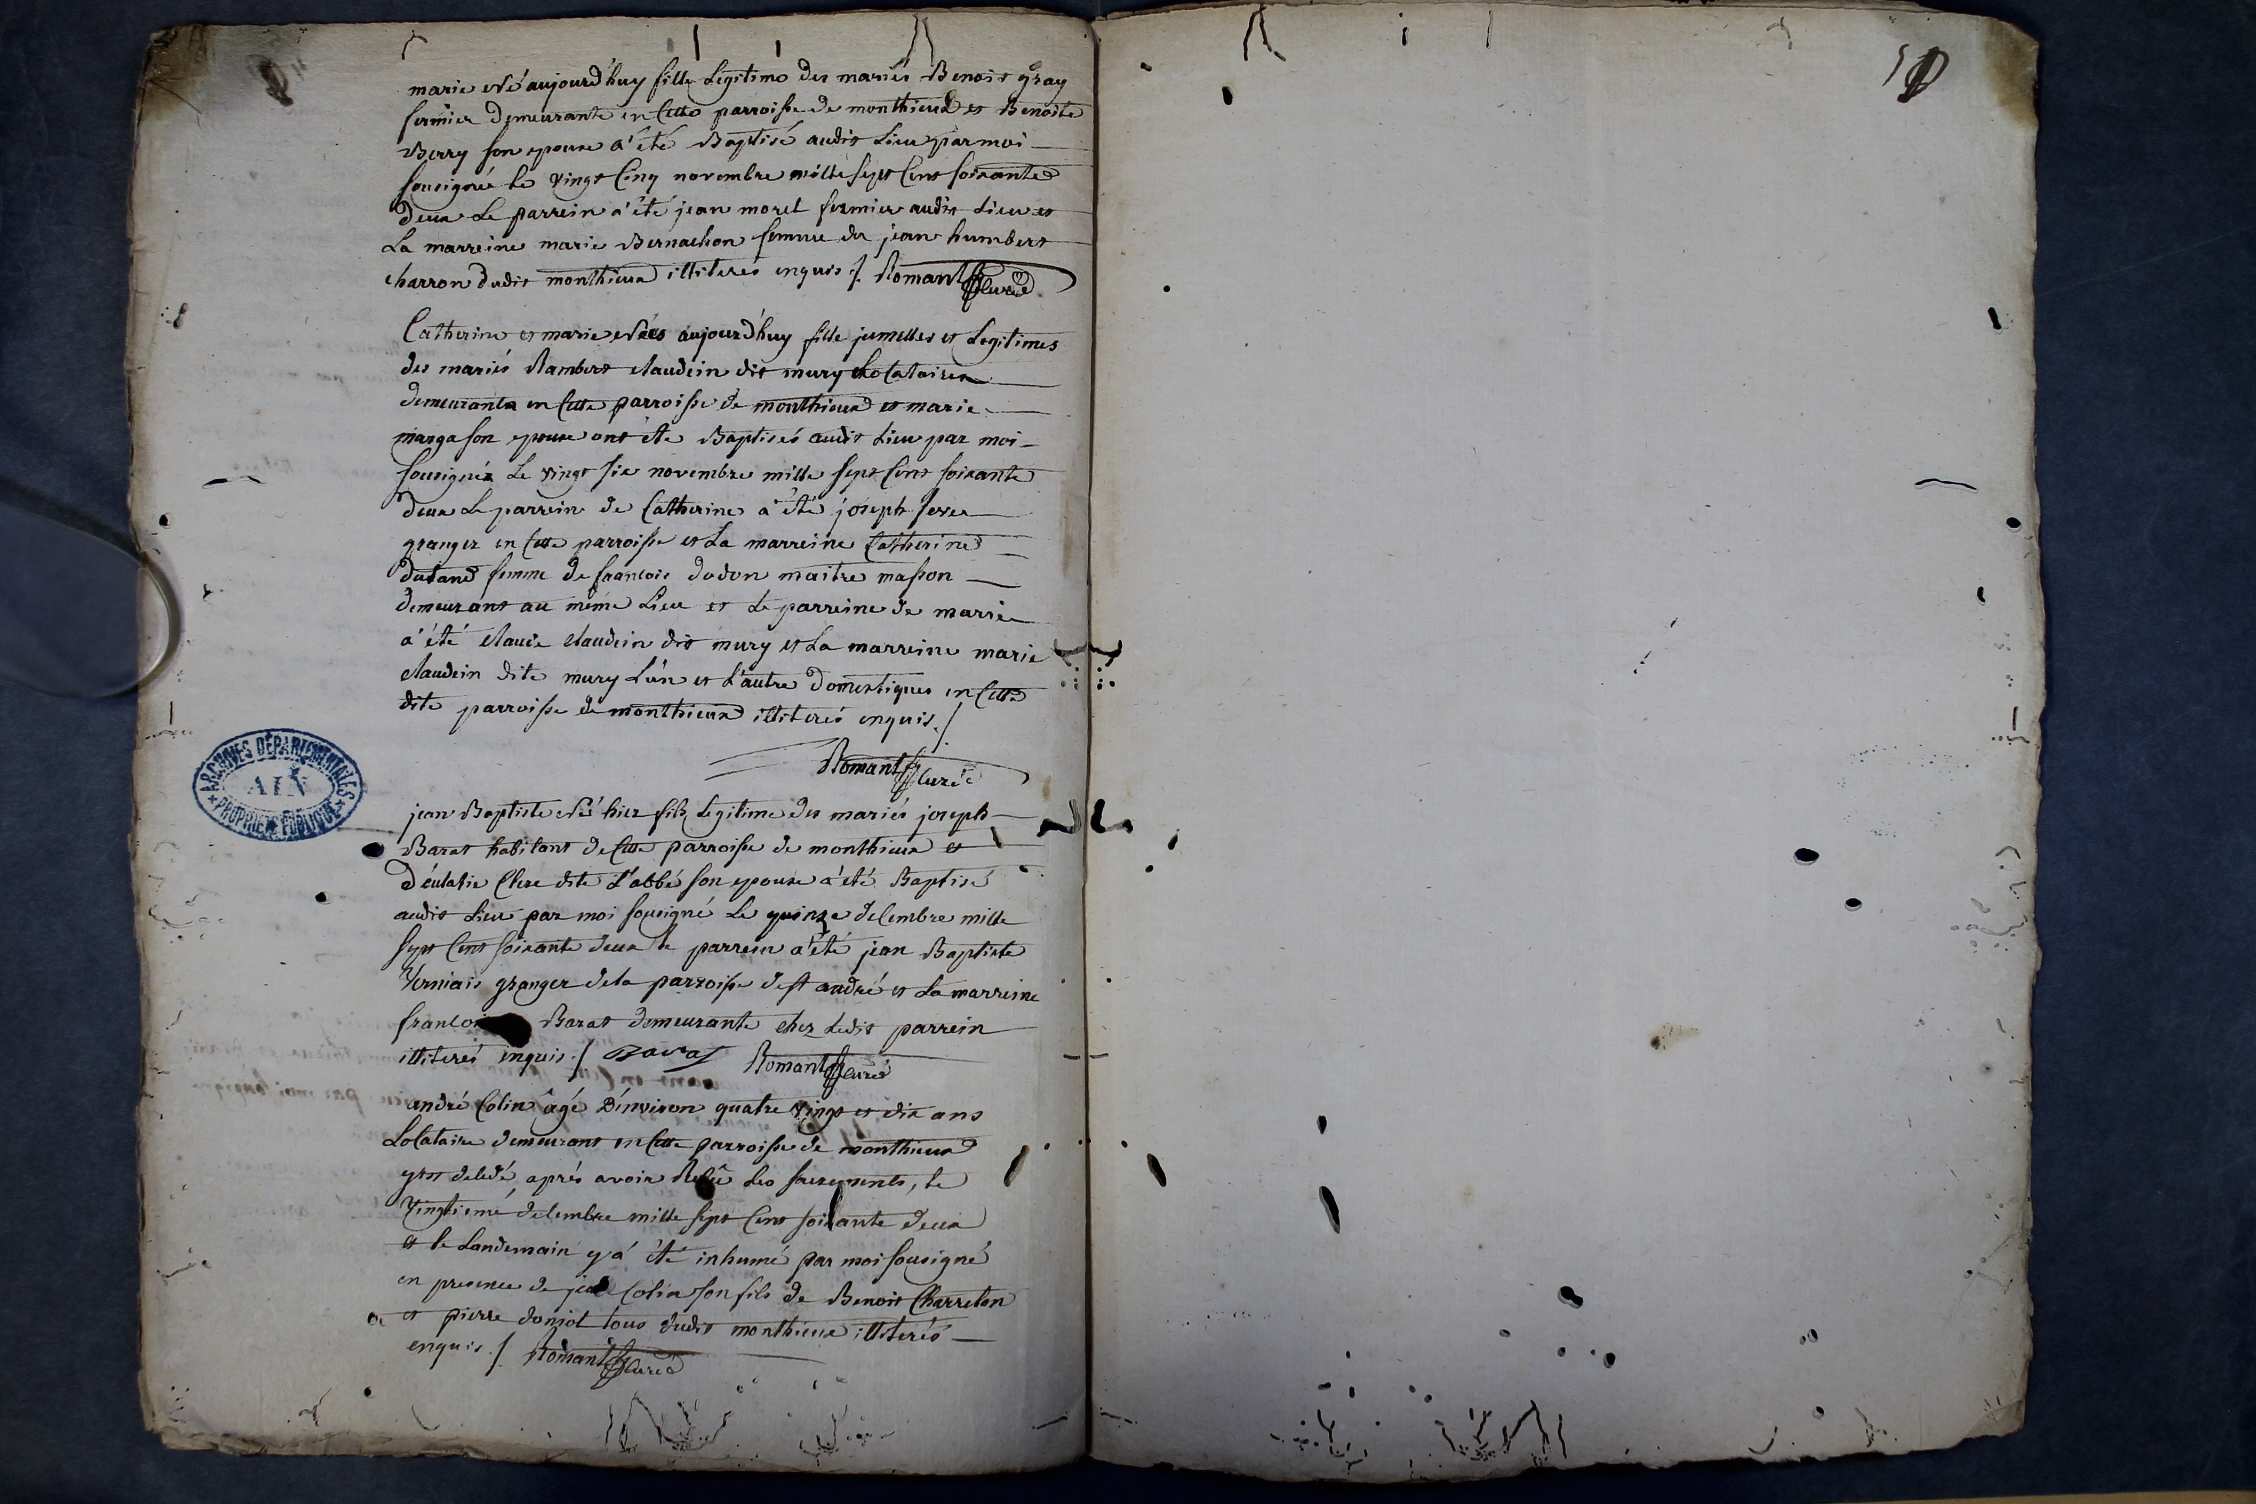 marie née aujourd'huy fille Legitime des mariés Benois gray
fermier demeurante en Cette parroisse de monthieux et Benoite
Berry son epouse a'été Baptisé audit Lieu par moi
sousigné le vingt Cinq novembre mille sept Cent soixante
deux Le parrein a'été jean morel fermier audit Lieu et
La marreine marie Bernachon femme de jean humbert
charron dudit monthieux illiterés enquis ./. Romant Curé
Catherine et marie nées aujourd'huy fille jumelles et Legitimes
des mariés Rambert claudein dit mury Locataires
demeurants en Cette parroisse de monthieux et marie
marga son epouse ont été Baptisés audit Lieu par moi
sousigné Le vingt six novembre mille sept Cent soixante
deux Le parrein de Catherine a'été joseph
granger en Cette parroisse et La marreine Catherine
femme de francois dodon maitre masson
demeurant au même Lieu et Le parreine de marie
a'été claude claudein dit mury et La marreine marie
claudein dite mury L'un et L'autre Domestiques en Cette
dite parroisse de monthieux illiterés enquis ./.
Romant Curé
ARCHIVES DÉPARTEMENTALES
AIN
PROPRIÉTÉ PUBLIQUE
jean Baptiste né hier fils Legitime des mariés joseph
Barat habitant de Cette parroisse de monthieux et
d'eulalie Clere dite L'abbé son epouse a'été Baptisé
audit Lieu par moi sousigné Le quinze decembre mille
sept Cent soixante deux le parrein a'été jean Baptiste
Verniais granger de la parroisse de st andré et La marreine
Barat demeurante chez Ledit parrein
illiterés enquis ./. Barat Romant Curé
andré Colin âgé D'environ quatre vingt et dix ans
Locataire demeurant en Cette parroisse de monthieux
y est decedé après avoir Reçû Les sacrements, le
vingtiemé decembre mille sept Cent soixante deux
et le Landemain y a' été inhumé par moi sousigné
en presence de jean Colin son fils de Benoit Charreton
et pierre donjot tous dudit monthieux illiterés
enquis ./. Romant Curé